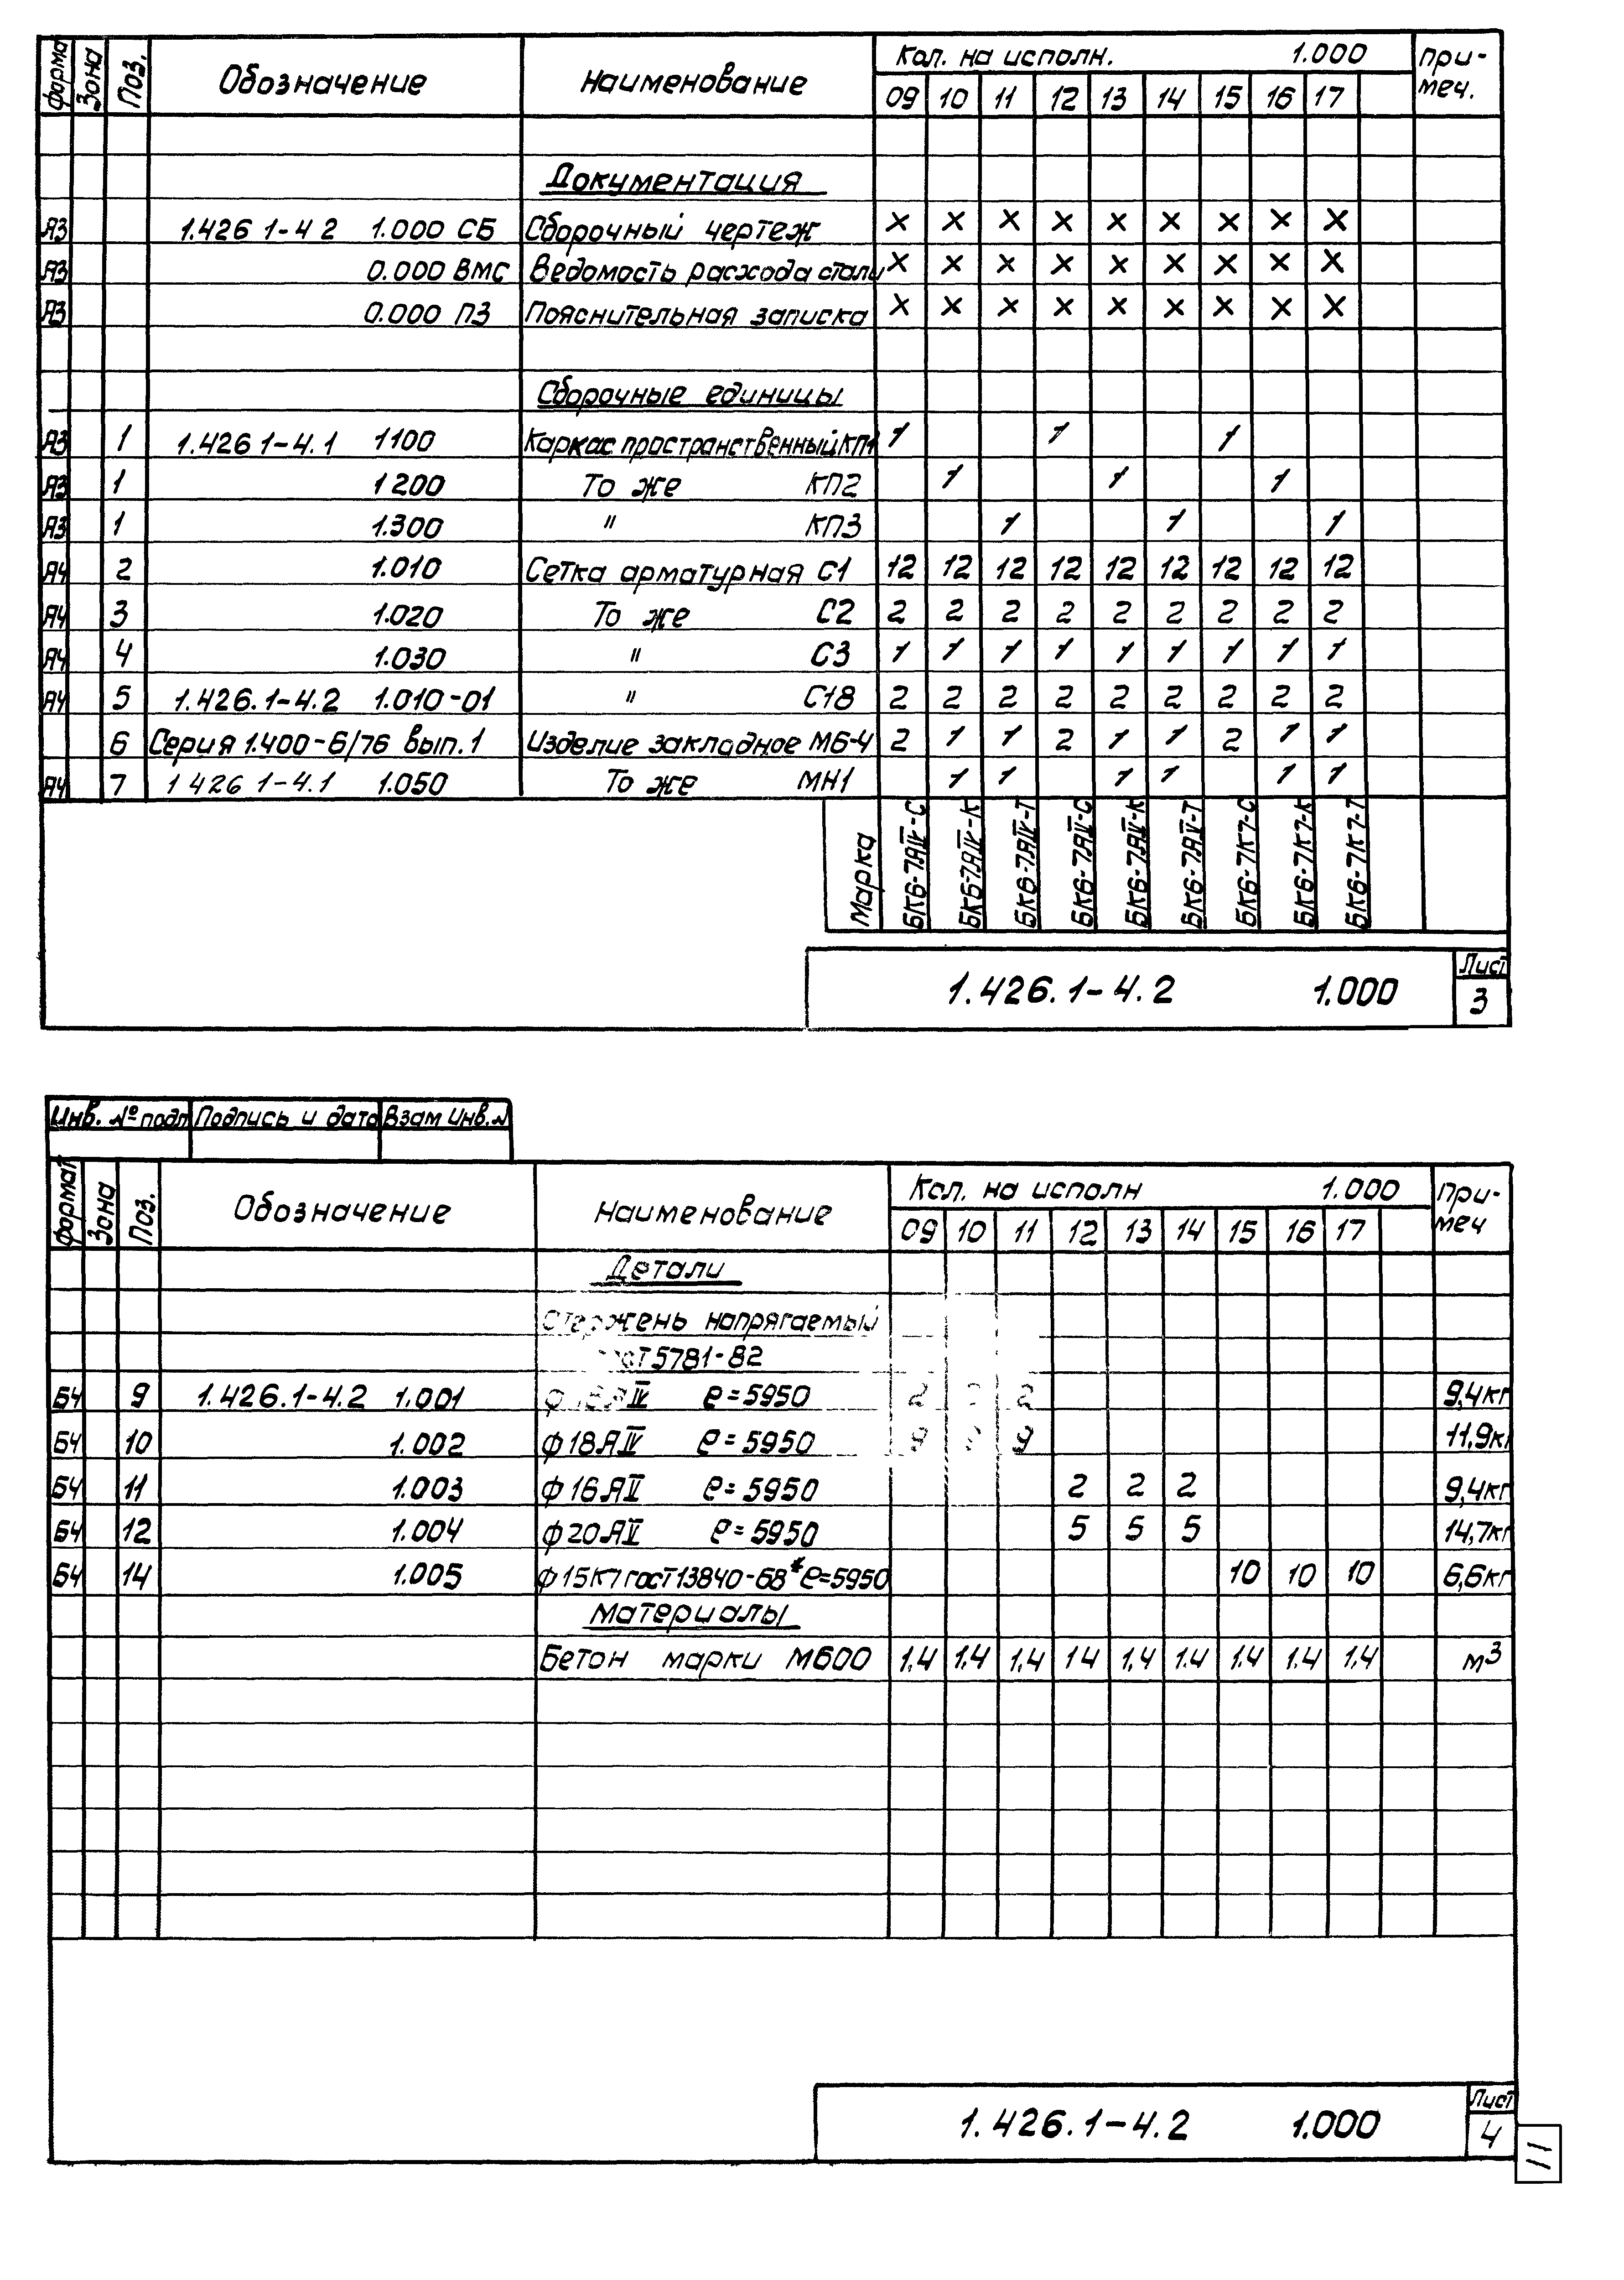 формат Зона Поз. Обозначение Наименование Кол. на исполн. 1.000 При-меч.
09 10 11 12 13 14 15 16 17
Документация
А3 1.426 1-4 2 1.000 СБ Сборочный чертеж × × × × × × × × ×
А3 0.000 ВМС Ведомость расхода стали × × × × × × × × ×
А3 0.000 ПЗ Пояснительная записка × × × × × × × × ×
Сборочные единицы
А3 1 1.426 1-4.1 1100 Каркас пространственный КП1 1 1 1
А3 1 1200 То же КП2 1 1 1
А3 1 1.300 " КП3 1 1 1
А4 2 1.010 Сетка арматурная С1 12 12 12 12 12 12 12 12 12
А4 3 1.020 То же С2 2 2 2 2 2 2 2 2 2
А4 4 1.030 " С3 1 1 1 1 1 1 1 1 1
А4 5 1.426.1-4.2 1.010-01 " С18 2 2 2 2 2 2 2 2 2
6 Серия 1.400-6/76 вып.1 Изделие закладное М6-4 2 1 1 2 1 1 2 1 1
А4 7 1 426 1-4.1 1.050 То же МН1 1 1 1 1 1 1
Марка БК6-7АIV-С БК6-7АIV-К БК6-7АIV-Т БК6-7АV-С БК6-7АV-К БК6-7АV-Т БК6-7К7-С БК6-7К7-К БК6-7К7-Т
1.426.1-4.2 1.000 Лист 3
Инв. № подп Подпись и дата Взам инв. №
формат Зона Поз. Обозначение Наименование Кол. на исполн 1.000 При-меч
09 10 11 12 13 14 15 16 17
Детали
Стержень напрягаемый
5781-82
Б4 9 1.426.1-4.2 1.001 IV ℓ=5950 2 2 9,4кг
Б4 10 1.002 ф18АIV ℓ=5950 9 9 11,9кг
Б4 11 1.003 ф16АV ℓ=5950 2 2 2 9,4кг
Б4 12 1.004 ф20АV ℓ=5950 5 5 5 14,7кг
Б4 14 1.005 ф15К7 гост 13840-68* ℓ=5950 10 10 10 6,6кг
Материалы
Бетон марки М600 1,4 1,4 1,4 1 4 1,4 1.4 1.4 1.4 1,4 м³
1.426.1-4.2 1.000 Лист 4
11